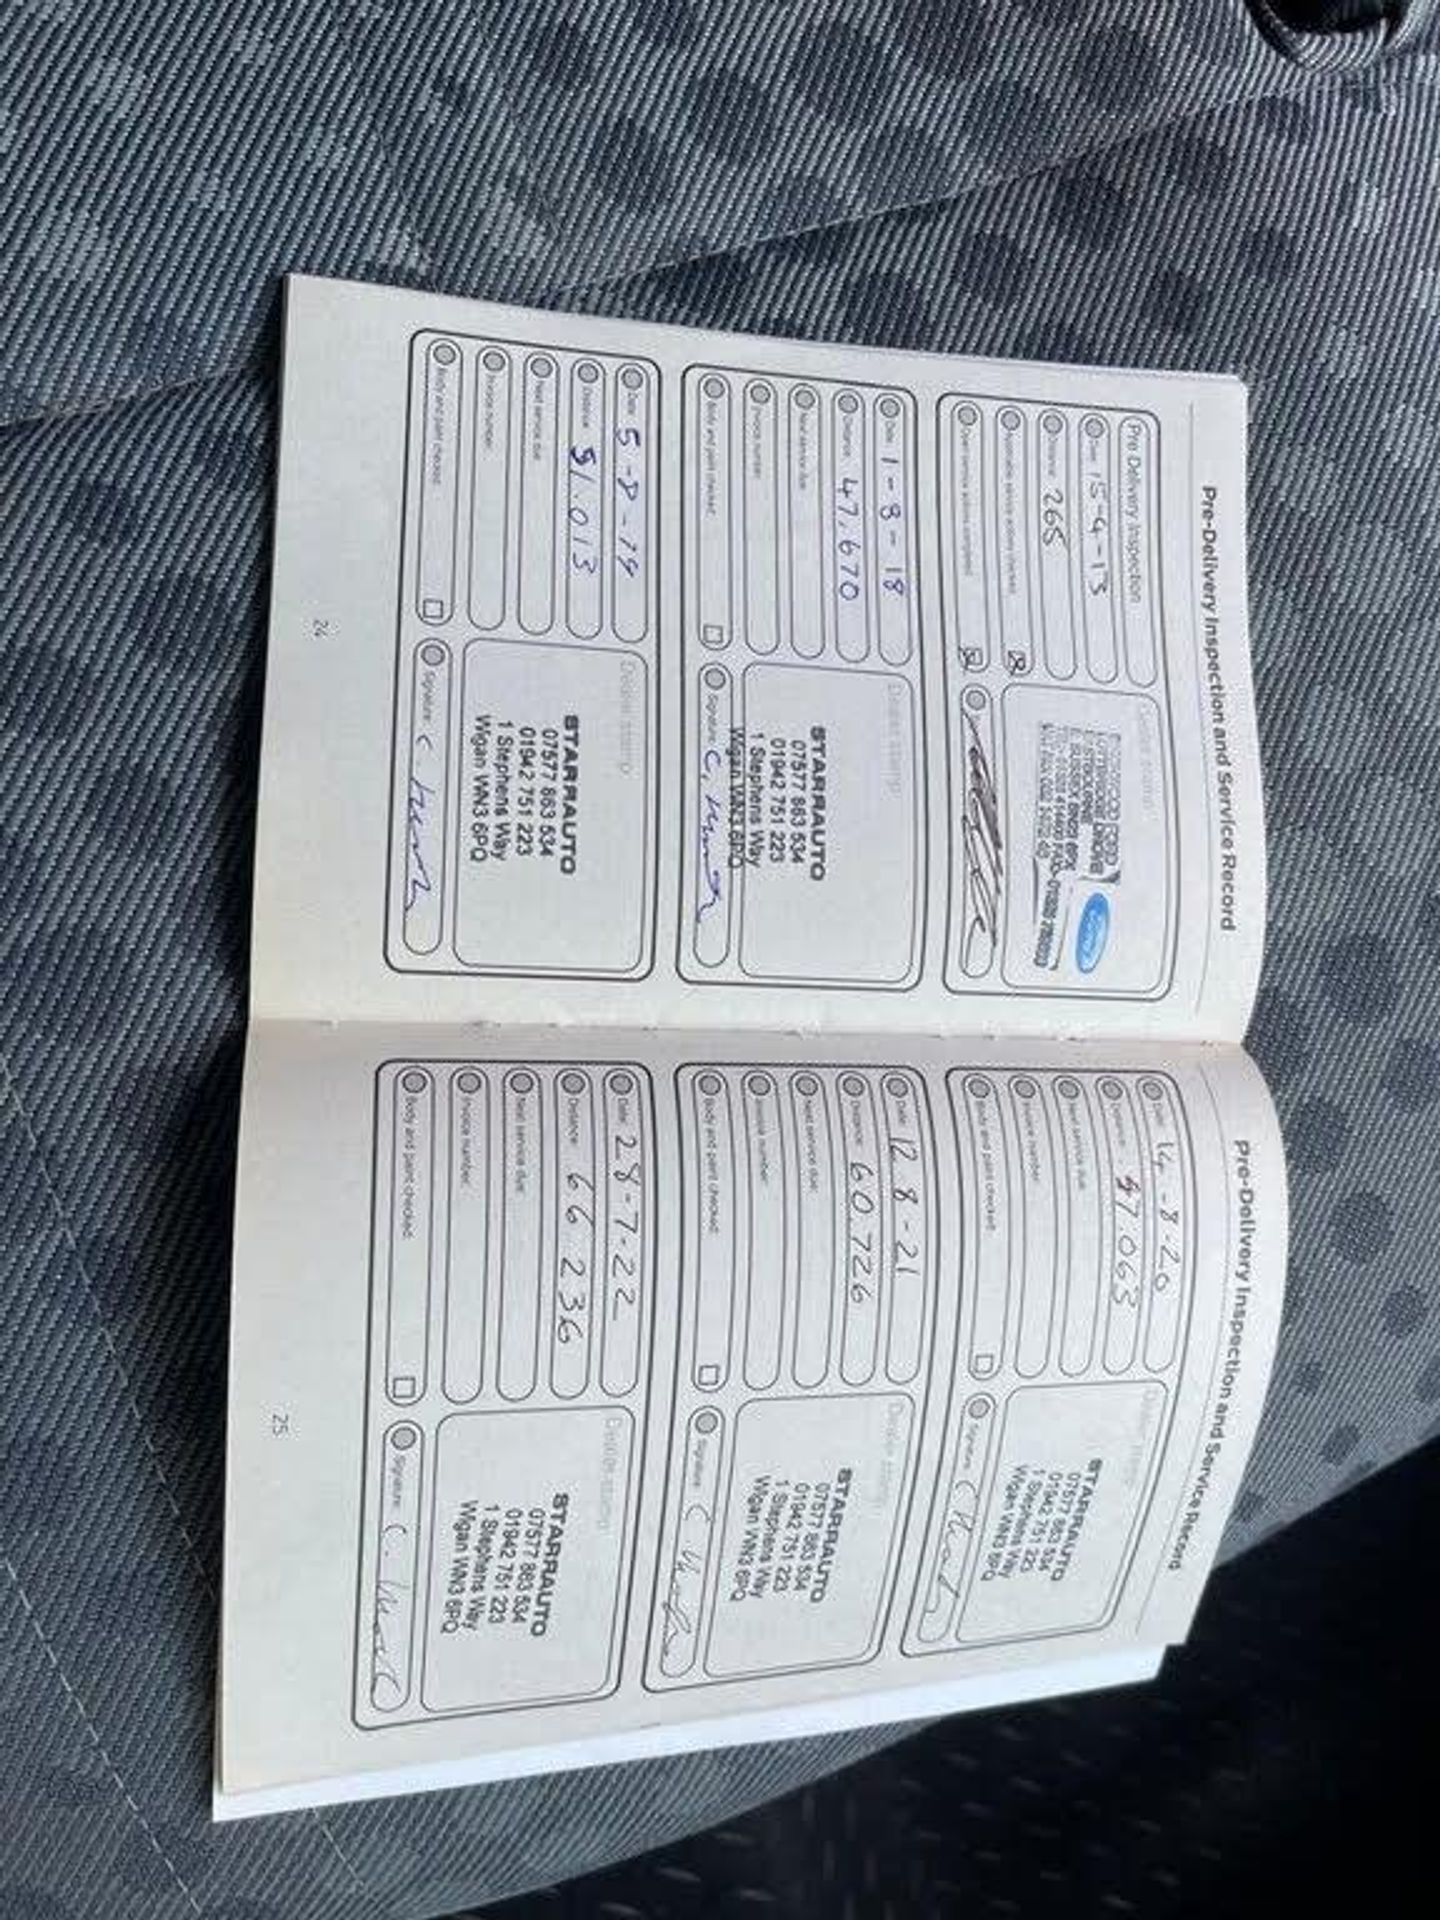 Pre-Delivery Inspection and Service Record
Pre Delivery Inspection
Date: 15-4-13
Distance: 265
Applicable service actions checked:
Open service actions completed:
Dealer stamp:
LOTTBRIDGE DROVE
EASTBOURNE
Ford
Date: 1-8-18
Distance: 47,670
Next service due:
Invoice number:
Body and paint checked:
Dealer stamp:
STARRAUTO
07577 863 534
01942 751 223
1 Stephens Way
Wigan WN3 6PQ
Signature: C.
Date: 5-8-19
Distance: 51.013
Next service due:
Invoice number:
Body and paint checked:
Dealer stamp:
STARRAUTO
07577 863 534
01942 751 223
1 Stephens Way
Wigan WN3 6PQ
Signature: C
24
Pre-Delivery Inspection and Service Record
Date: 14-8-20
Distance: 57.063
Next service due:
Invoice number:
Body and paint checked:
Dealer stamp:
STARRAUTO
07577 863 534
01942 751 223
1 Stephens Way
Wigan WN3 6PQ
Signature: C
Date: 12-8-21
Distance: 60.726
Next service due:
Invoice number:
Body and paint checked:
Dealer stamp:
STARRAUTO
07577 863 534
01942 751 223
1 Stephens Way
Wigan WN3 6PQ
Signature: C
Date: 28-7-22
Distance: 66 236
Next service due:
Invoice number:
Body and paint checked:
Dealer stamp:
STARRAUTO
07577 863 534
01942 751 223
1 Stephens Way
Wigan WN3 6PQ
Signature: C.
25